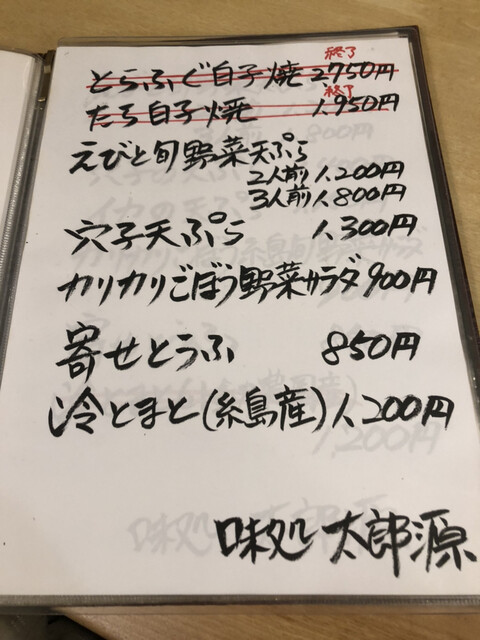 終了
とらふぐ白子焼 2,750円
終了
たら白子焼 1,950円
えびと旬野菜天ぷら
2人前 1,200円
3人前 1,800円
穴子天ぷら 1,300円
カリカリごぼう野菜サラダ 900円
寄せとうふ 850円
冷とまと(糸島産) 1,200円
味処 太郎源